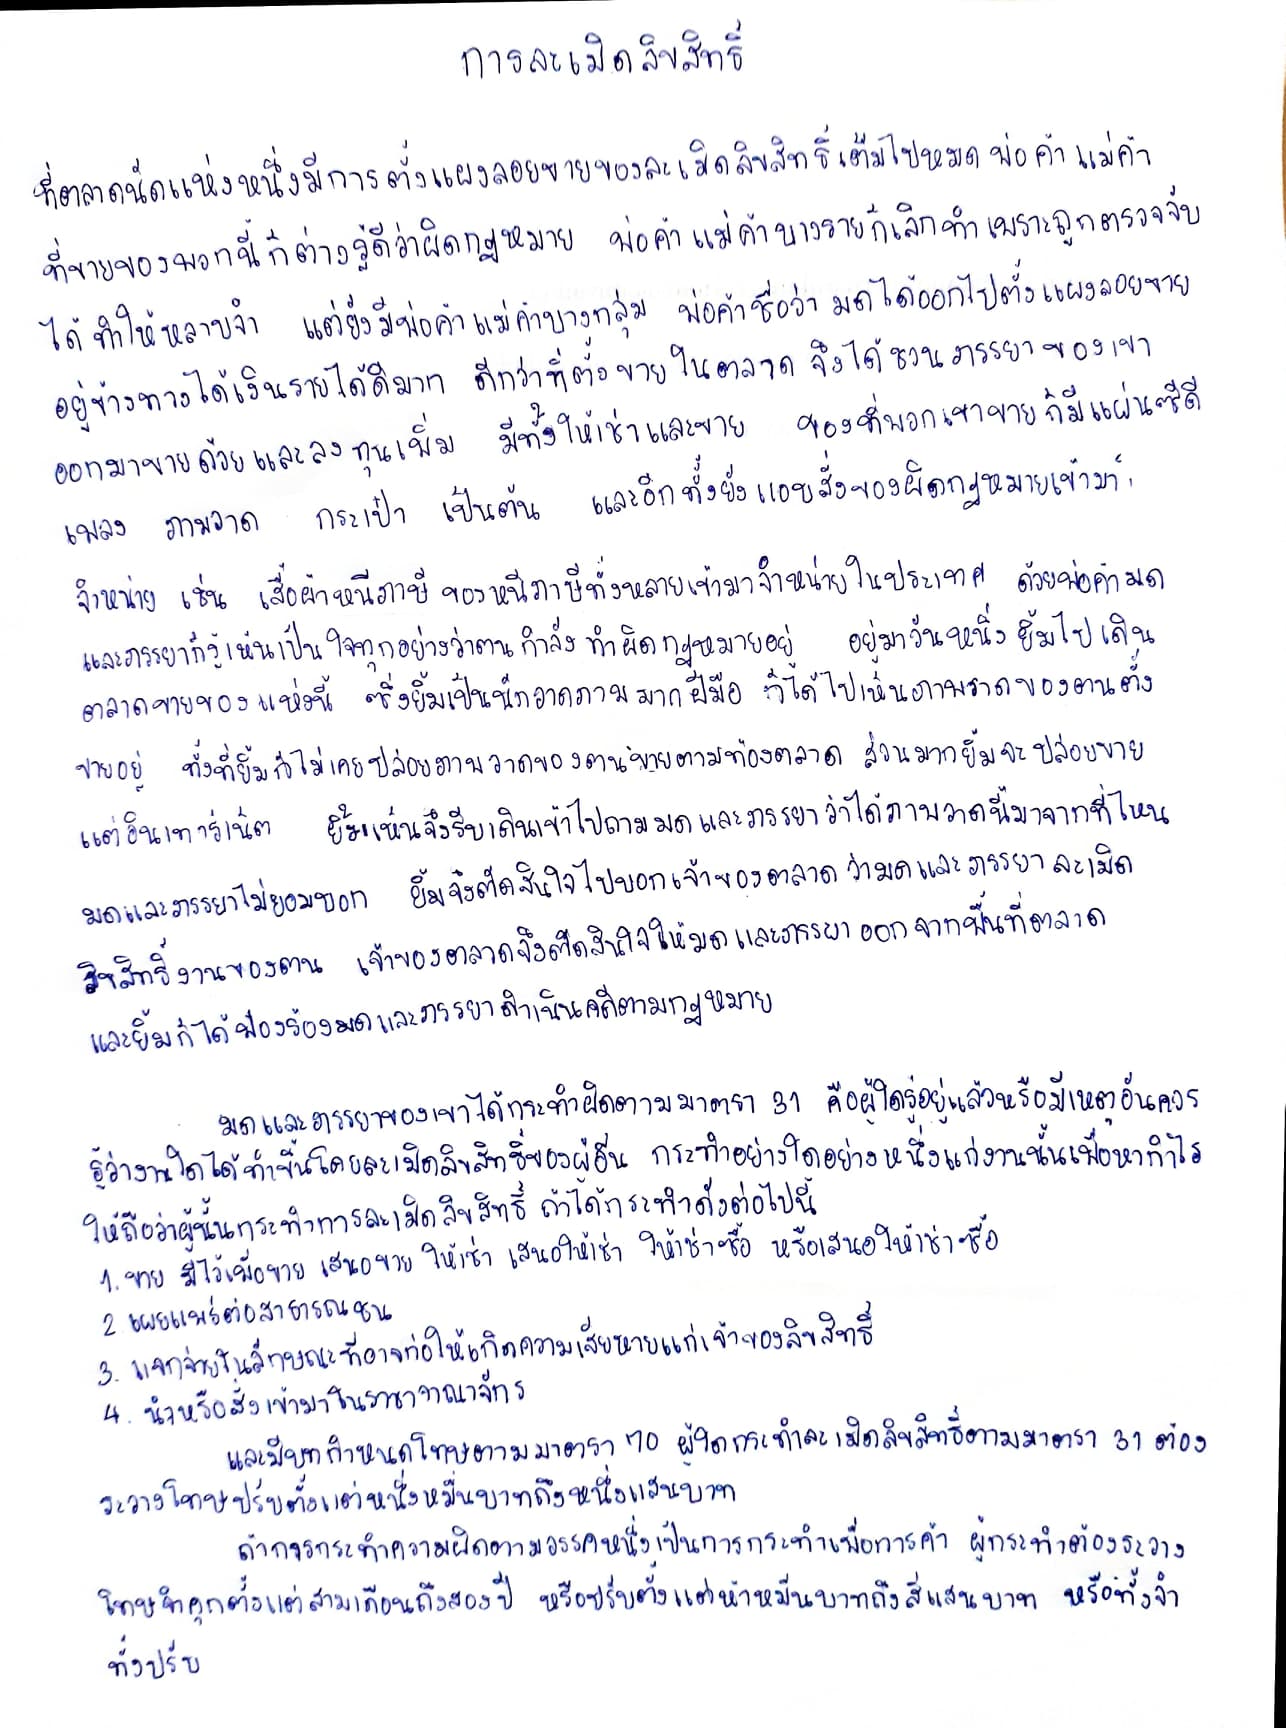 การละเมิดลิขสิทธิ์
ที่ตลาดนัดแห่งหนึ่งมีการตั้งแผงลอยขายของละเมิดลิขสิทธิ์เต็มไปหมด พ่อค้า แม่ค้า
ที่ขายของพวกนี้ก็ต่างรู้ดีว่าผิดกฎหมาย พ่อค้า แม่ค้าบางรายก็เลิกทำเพราะถูกตรวจจับ
ได้ ทำให้หลาบจำ แต่ยังมีพ่อค้าแม่ค้าบางกลุ่ม พ่อค้าชื่อว่า มดได้ออกไปตั้งแผงลอยขาย
อยู่ข้างทางได้เงินรายได้ดีมาก ดีกว่าที่ตั้งขายในตลาด จึงได้ชวนภรรยาของเขา
ออกมาขายด้วยและลงทุนเพิ่ม มีทั้งให้เช่าและขาย ของที่พวกเขาขายก็มีแผ่นซีดี
เพลง ภาพวาด กระเป๋า เป็นต้น และอีกทั้งยังแอบสั่งของผิดกฎหมายเข้ามา
จำหน่าย เช่น เสื้อผ้าหนีภาษี ของหนีภาษีทั้งหลายเข้ามาจำหน่ายในประเทศ ด้วยพ่อค้ามด
และภรรยาก็รู้เห็นเป็นใจทุกอย่างว่าตนกำลังทำผิดกฎหมายอยู่ อยู่มาวันหนึ่งยิ้มไปเดิน
ตลาดขายของแห่งนี้ ซึ่งยิ้มเป็นนักวาดภาพมากฝีมือ ก็ได้ไปเห็นภาพวาดของตนตั้ง
ขายอยู่ ทั้งที่ยิ้มก็ไม่เคยปล่อยภาพวาดของตนขายตามท้องตลาด ส่วนมากยิ้มจะปล่อยขาย
แต่อินเทอร์เน็ต ยิ้มเห็นจึงรีบเดินเข้าไปถามมดและภรรยาว่าได้ภาพวาดนี้มาจากที่ไหน
มดและภรรยาไม่ยอมบอก ยิ้มจึงตัดสินใจไปบอกเจ้าของตลาดว่ามดและภรรยาละเมิด
ลิขสิทธิ์งานของตน เจ้าของตลาดจึงตัดสินใจให้มดและภรรยาออกจากพื้นที่ตลาด
และยิ้มก็ได้ฟ้องร้องมดและภรรยาดำเนินคดีตามกฎหมาย
มดและภรรยาของเขาได้กระทำผิดตามมาตรา 31 คือผู้ใดรู้อยู่แล้วหรือมีเหตุอันควร
รู้ว่างานใดได้ทำขึ้นโดยละเมิดลิขสิทธิ์ของผู้อื่น กระทำอย่างใดอย่างหนึ่งแก่งานนั้นเพื่อหากำไร
ให้ถือว่าผู้นั้นกระทำการละเมิดลิขสิทธิ์ ถ้าได้กระทำดังต่อไปนี้
1. ขาย มีไว้เพื่อขาย เสนอขาย ให้เช่า เสนอให้เช่า ให้เช่าซื้อ หรือเสนอให้เช่าซื้อ
2 เผยแพร่ต่อสาธารณชน
3. แจกจ่ายในลักษณะที่อาจก่อให้เกิดความเสียหายแก่เจ้าของลิขสิทธิ์
4. นำหรือสั่งเข้ามาในราชาอาณาจักร
และมีบทกำหนดโทษตามมาตรา 70 ผู้ใดกระทำละเมิดลิขสิทธิ์ตามมาตรา 31 ต้อง
ระวางโทษปรับตั้งแต่หนึ่งหมื่นบาทถึงหนึ่งแสนบาท
ถ้าการกระทำความผิดตามวรรคหนึ่งเป็นการกระทำเพื่อการค้า ผู้กระทำต้องระวาง
โทษจำคุกตั้งแต่สามเดือนถึงสองปี หรือปรับตั้งแต่ห้าหมื่นบาทถึงสี่แสนบาท หรือทั้งจำ
ทั้งปรับ